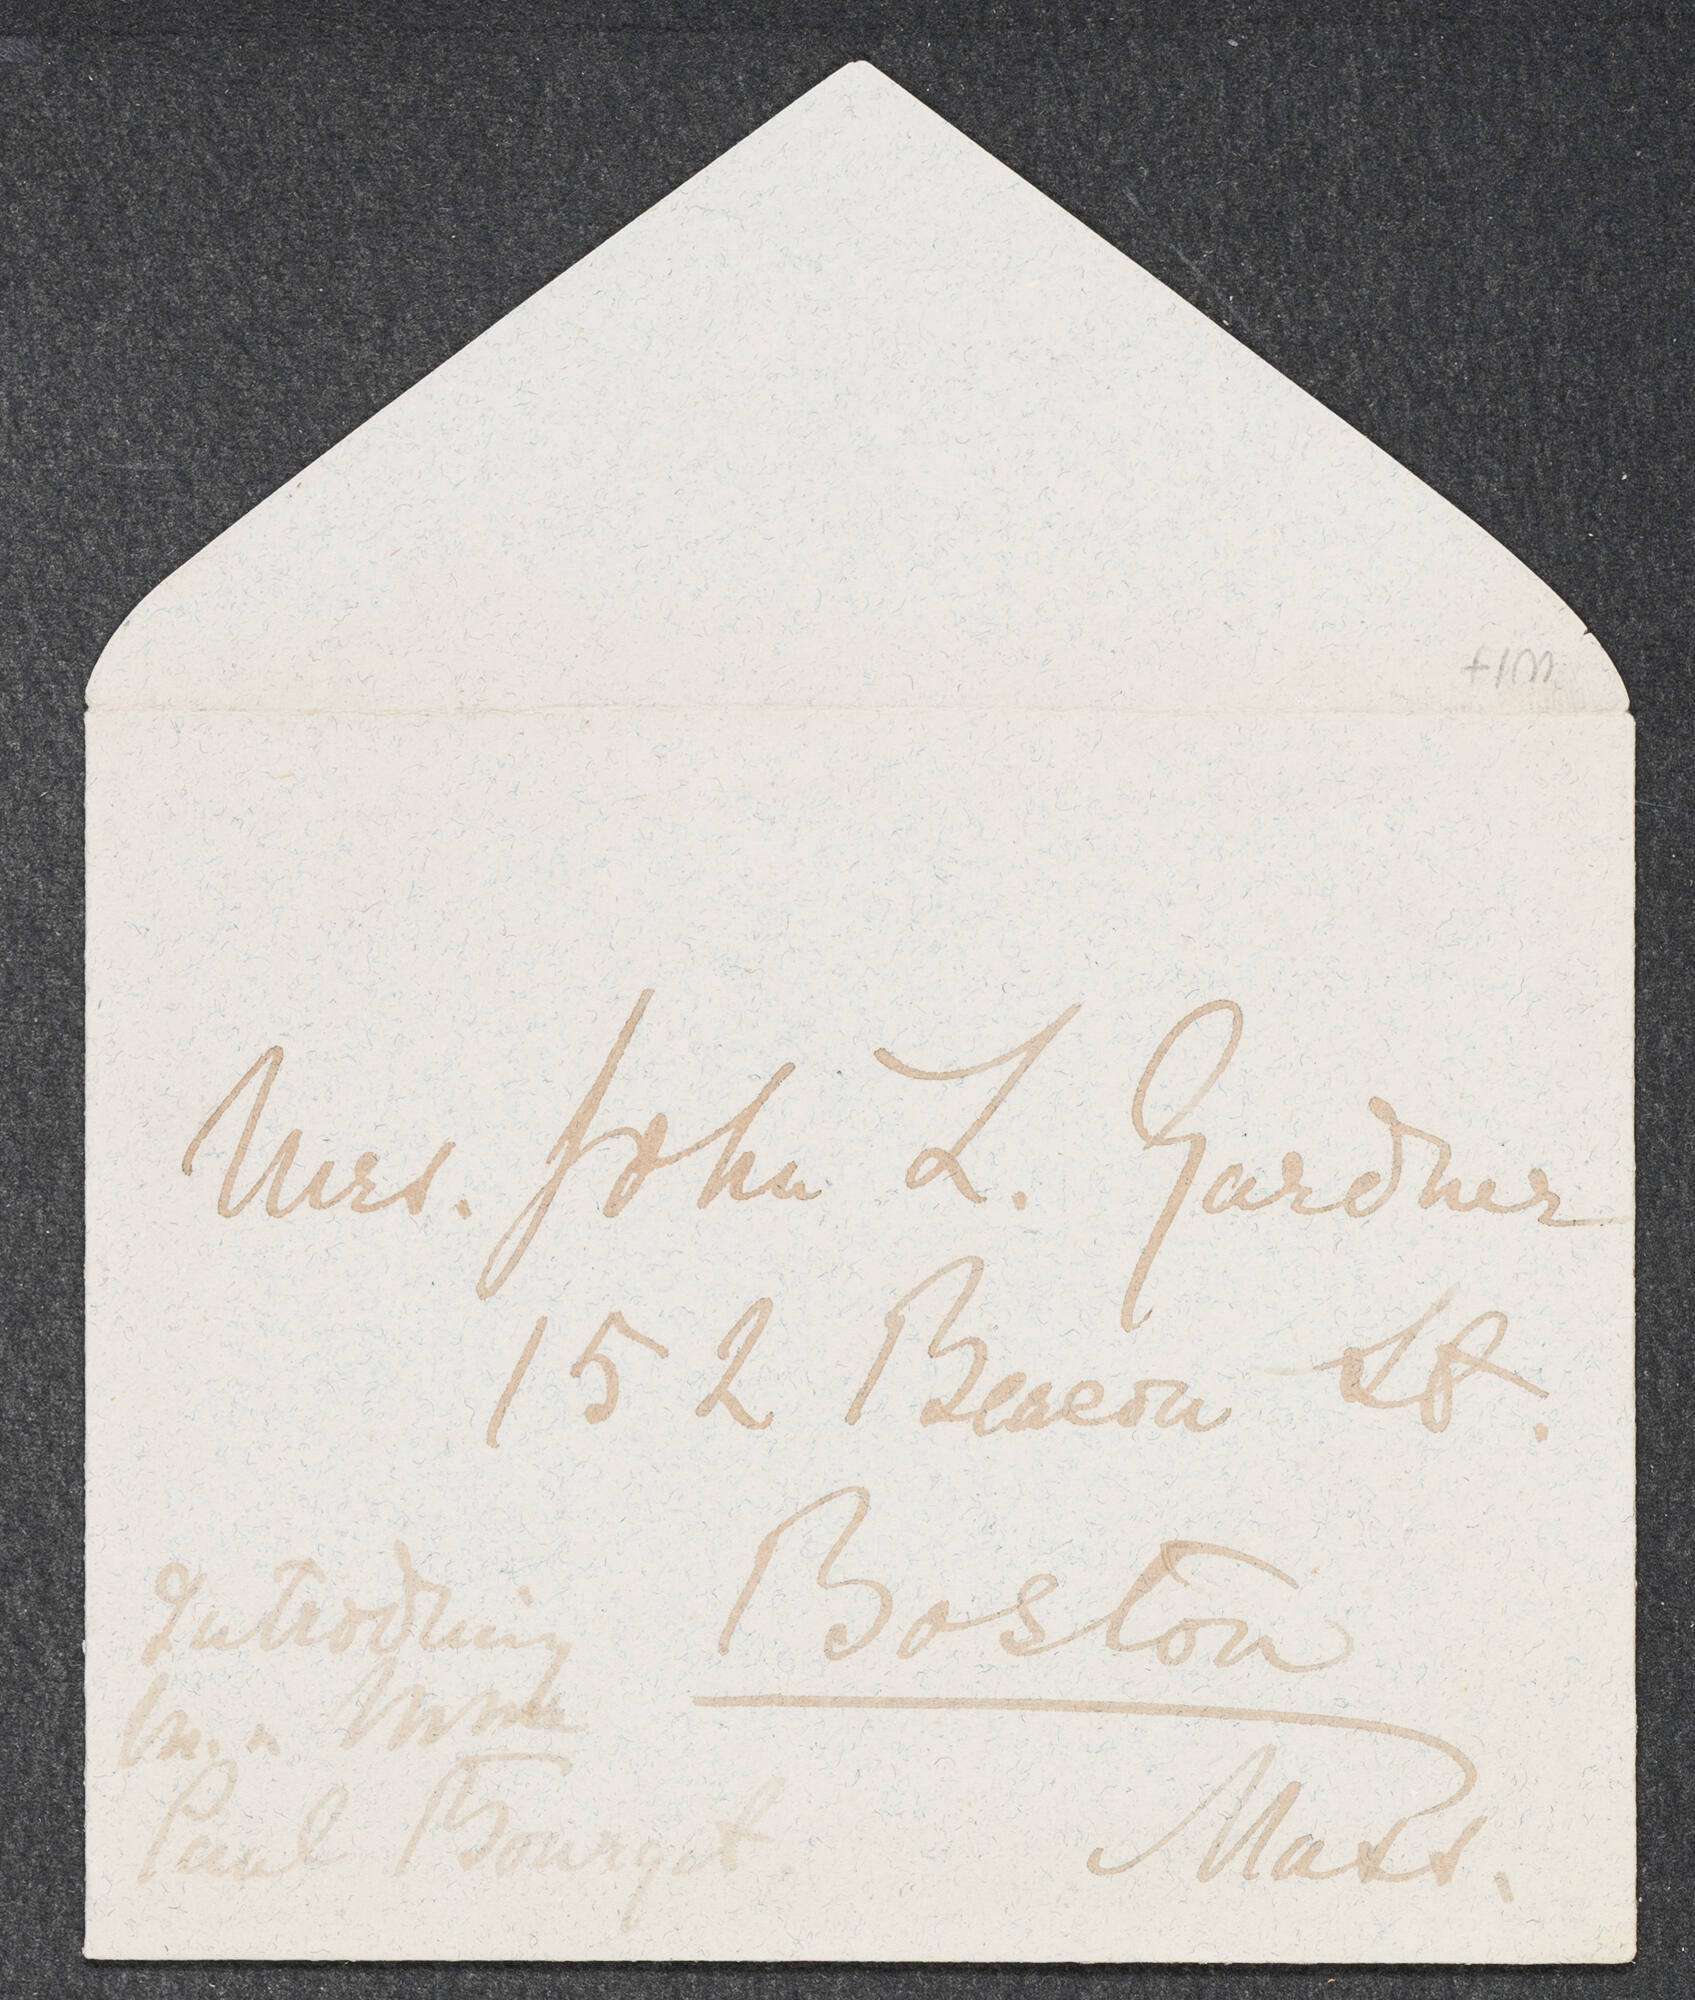 Mrs. John L. Gardner
152 Beacon St.
Boston
Mass.
Introducing
M. & Mme
Paul Bourget.